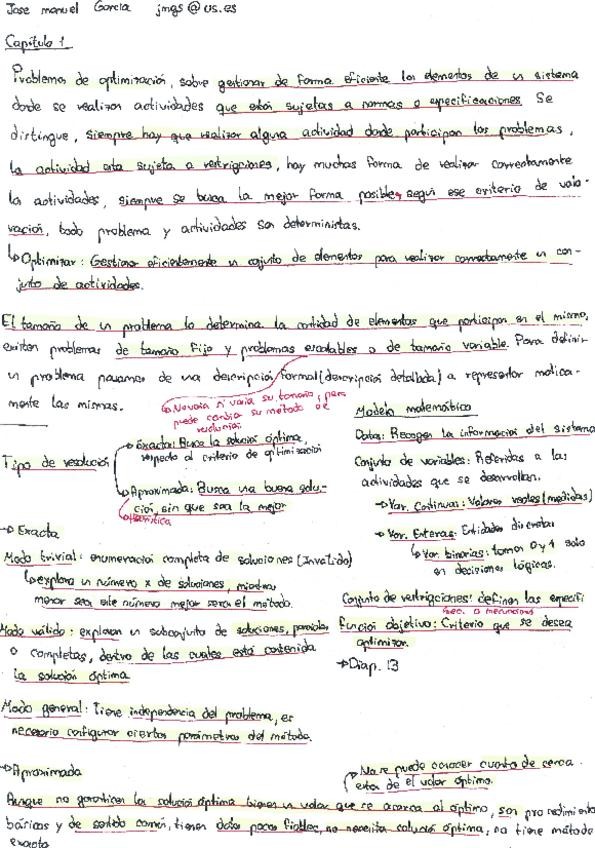 Jose manuel García jmgs@us.es
Capítulo 1
Problemas de optimización, sobre gestionar de forma eficiente los elementos de un sistema
donde se realizan actividades que están sujetas a normas o especificaciones. Se
distingue, siempre hay que realizar alguna actividad donde participan los problemas,
la actividad esta sujeta a restricciones, hay muchas forma de realizar correctamente
la actividades, siempre se busca la mejor forma posible, según ese criterio de valo-
ración, todo problema y actividades son deterministas.
Optimizar: Gestionar eficientemente un conjunto de elementos para realizar correctamente un con-
junto de actividades.
El tamaño de un problema lo determina la cantidad de elementos que participan en el mismo,
existen problemas de tamaño fijo y problemas escalables o de tamaño variable. Para definir
un problema pasamos de una descripción formal (descripción detallada) a representar
mente las mismas.
No varia si varia su tamaño, pero
puede cambia su método de
resolución.
Tipo de resolución
Exacta: Busca la solución óptima,
respecto al criterio de optimización
Aproximada: Busca una buena solu-
ción, sin que sea la mejor
Heurística
Modelo matemático
Datos: Recogen la información del sistema
Conjunto de variables: Referidas a las
actividades que se desarrollan.
→ Var. Continuas: Valores reales (medidas)
→ Var. Enteras: Entidades discretas
Var. binarias: toman 0 y 1 solo
en decisiones lógicas.
Conjunto de restricciones: definen las especifi
Función objetivo: Criterio que se desea
optimizar.
→ Diap. 13
→ Exacta
Modo trivial: enumeración completa de soluciones (Invalido)
explora un número x de soluciones, mientras
menor sea este número mejor sera el método.
Modo válido: exploran un subconjunto de soluciones, parciales
o completas, dentro de las cuales está contenida
la solución óptima
Modo general: Tiene independencia del problema, es
necesario configurar ciertos parámetros del método.
→ Aproximada
No se puede conocer cuanto de cerca
estan de el valor óptimo.
Aunque no garantizan la solución óptima tienen un valor que se acerca al óptimo, son procedimientos
básicos y de sentido común, tienen datos pocos fiables, no necesita solución óptima, no tiene método
exacto